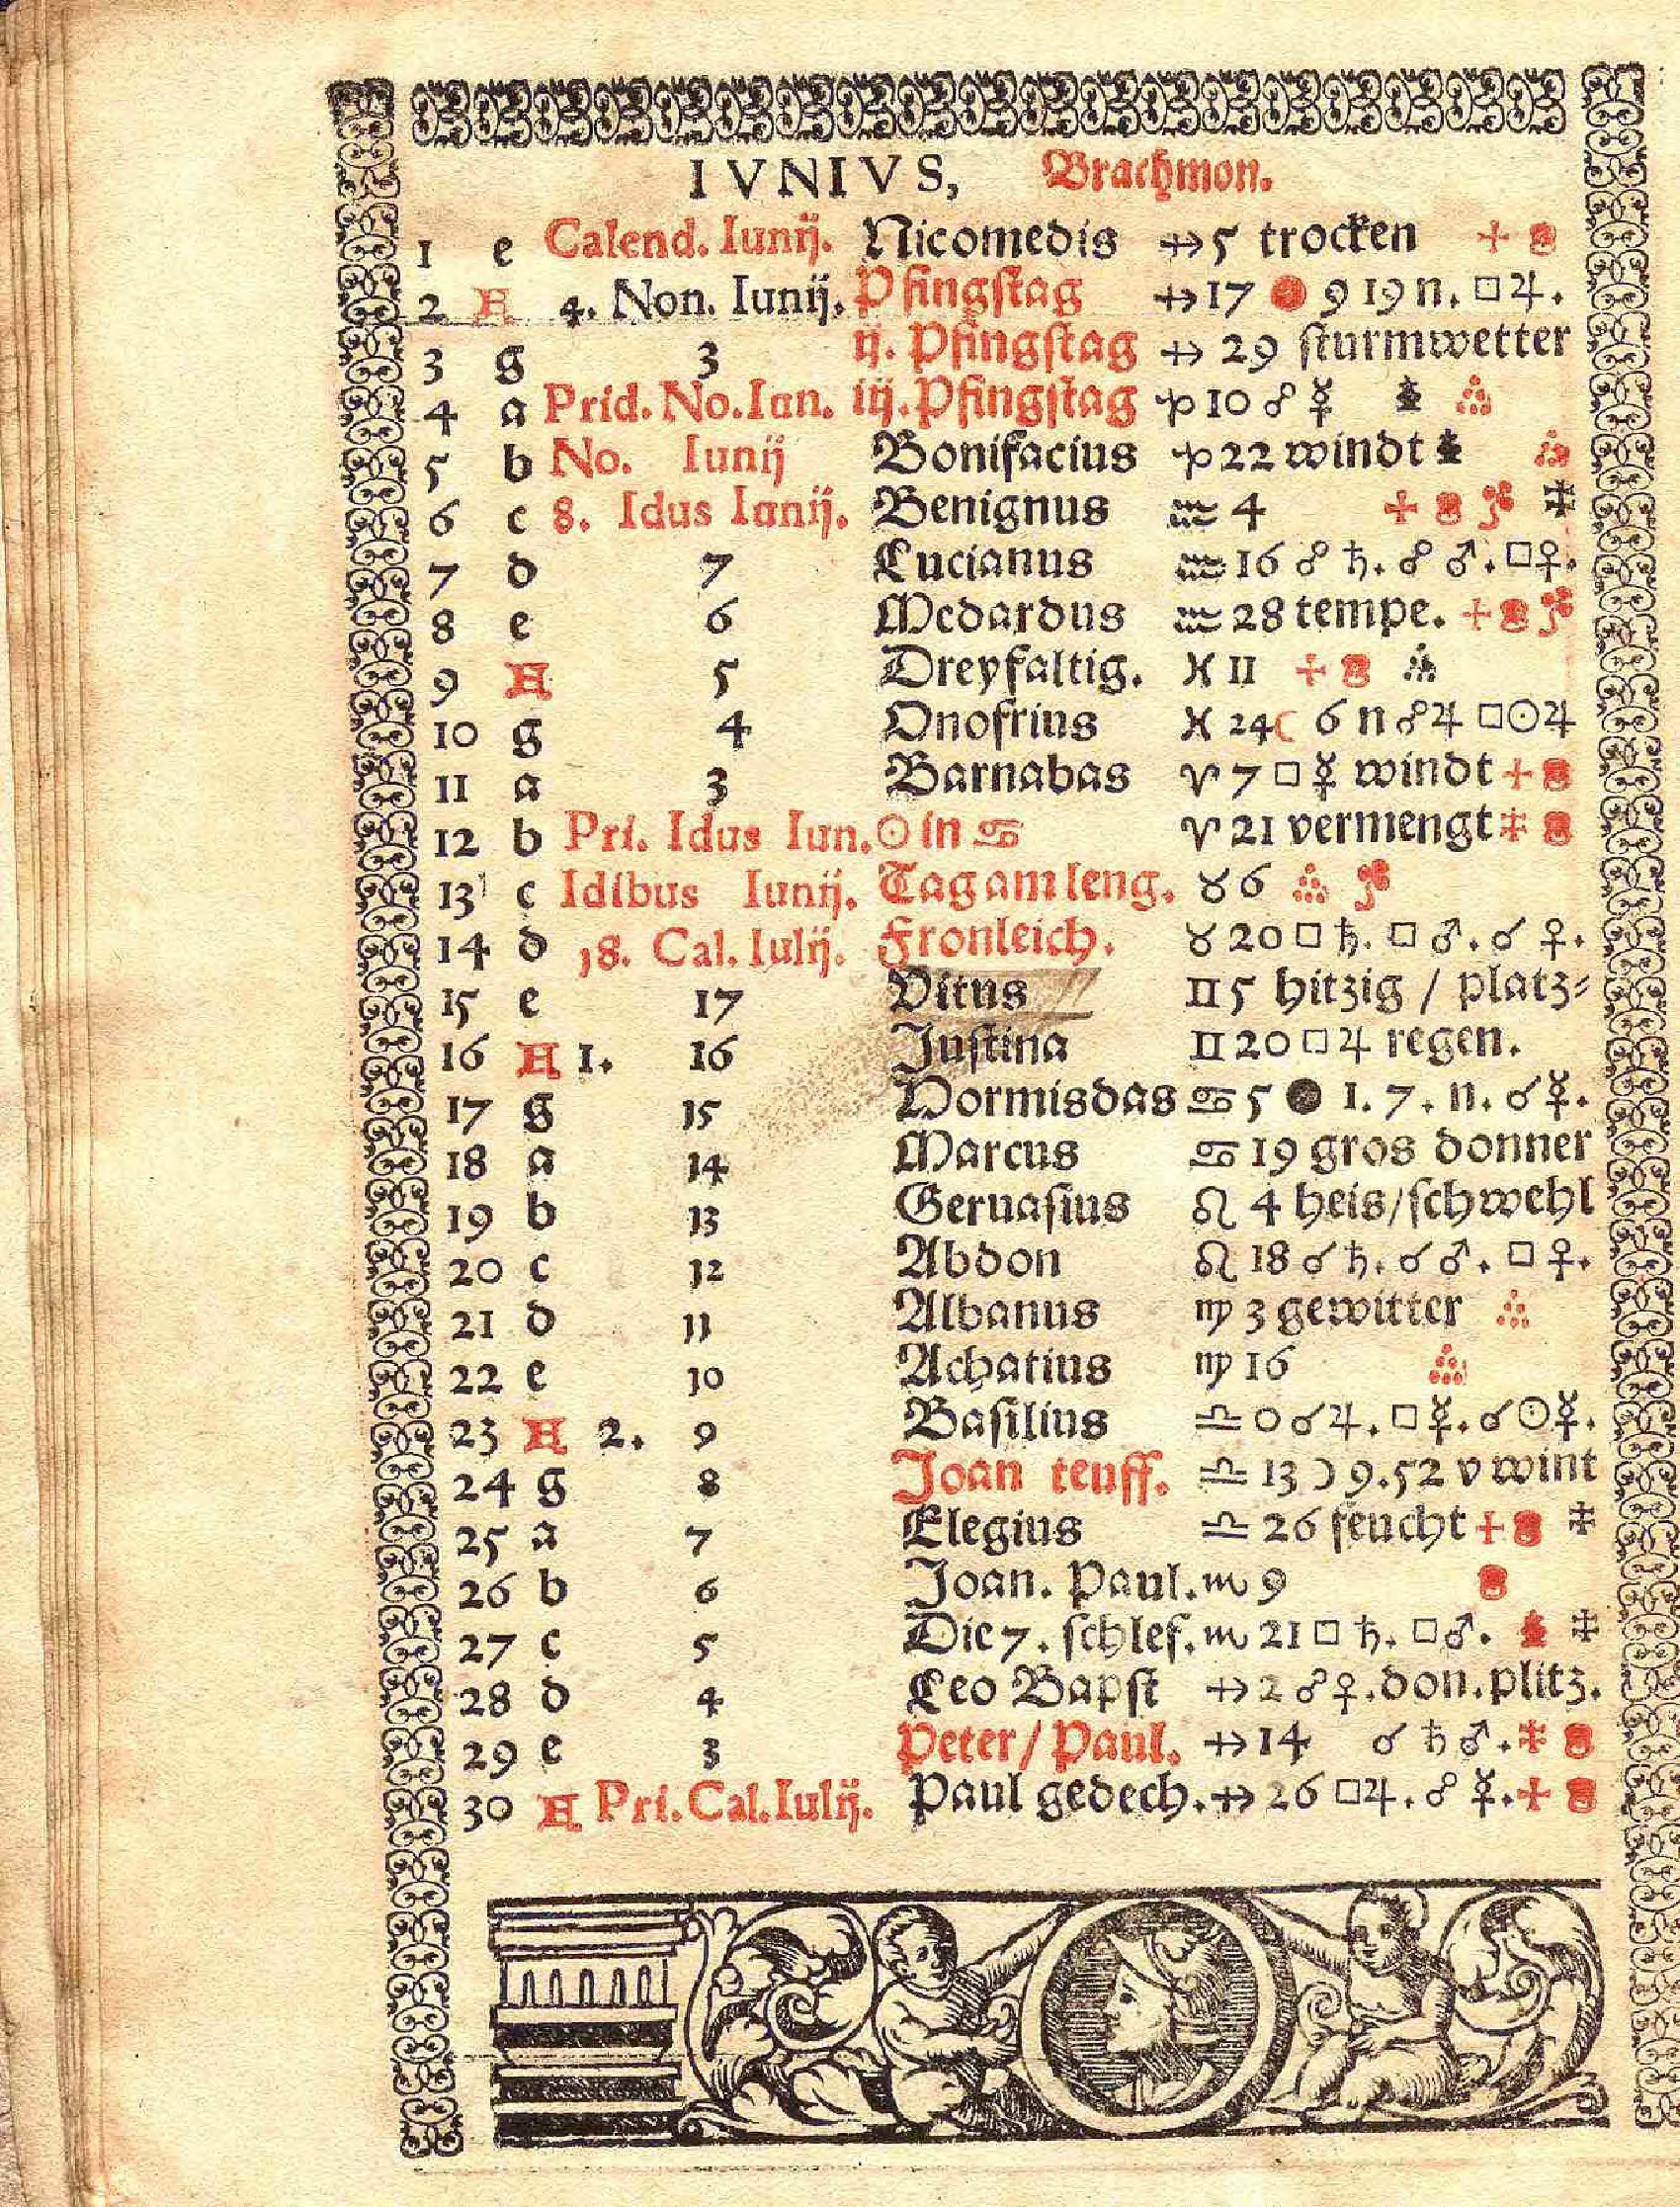 IVNIVS, Brachmon.
1 e Calend. Iunij. Nicomedis ♐ 5 trocken
2 A 4. Non. Iunij. Pfingstag ♐ 17 9 19 n. □ ♃.
3 g 3 ij. Pfingstag ♐ 29 sturmwetter
4 a Prid. No. Iun. iij. Pfingstag ♑ 10 ☍ ☿
5 b No. Iunij Bonifacius ♑ 22 windt
6 c 8. Idus Iunij. Benignus ♒ 4
7 d 7 Lucianus ♒ 16 ☍ ♄. ☍ ♂. □ ♀.
8 e 6 Medardus ♒ 28 tempe.
9 A 5 Dreyfaltig. ♓ 11
10 g 4 Onofrius ♓ 24 ☾ 6 n ☍ ♃ □ ☉ ♃
11 a 3 Barnabas ♈ 7 □ ☿ windt
12 b Pri. Idus Iun. ☉ in ♋ ♈ 21 vermengt
13 c Idibus Iunij. Tag am leng. ♉ 6
14 d 18. Cal. Iulij. Fronleich. ♉ 20 □ ♄. □ ♂. ☌ ♀.
15 e 17 Vitus ♊ 5 hitzig / platz-
16 A 1. 16 Justina ♊ 20 □ ♃ regen.
17 g 15 Hormisdas ♋ 5 ● 1. 7. n. ☌ ☿.
18 a 14 Marcus ♋ 19 gros donner
19 b 13 Geruasius ♌ 4 heis/schwehl
20 c 12 Abdon ♌ 18 ☌ ♄. ☌ ♂. □ ♀.
21 d 11 Albanus ♍ 3 gewitter
22 e 10 Achatius ♍ 16
23 A 2. 9 Basilius ♎ 0 ☌ ♃. □ ☿. ☌ ☉ ☿.
24 g 8 Joan teuff. ♎ 13 ☽ 9.52 v wint
25 a 7 Elegius ♎ 26 feucht
26 b 6 Joan. Paul. ♏ 9
27 c 5 Die 7. schlef. ♏ 21 □ ♄. □ ♂.
28 d 4 Leo Bapst ♐ 2 ☍ ♀. don. plitz.
29 e 3 Peter / Paul. ♐ 14 ☌ ♄ ♂.
30 A Pri. Cal. Iulij. Paul gedech. ♐ 26 □ ♃. ☍ ☿.